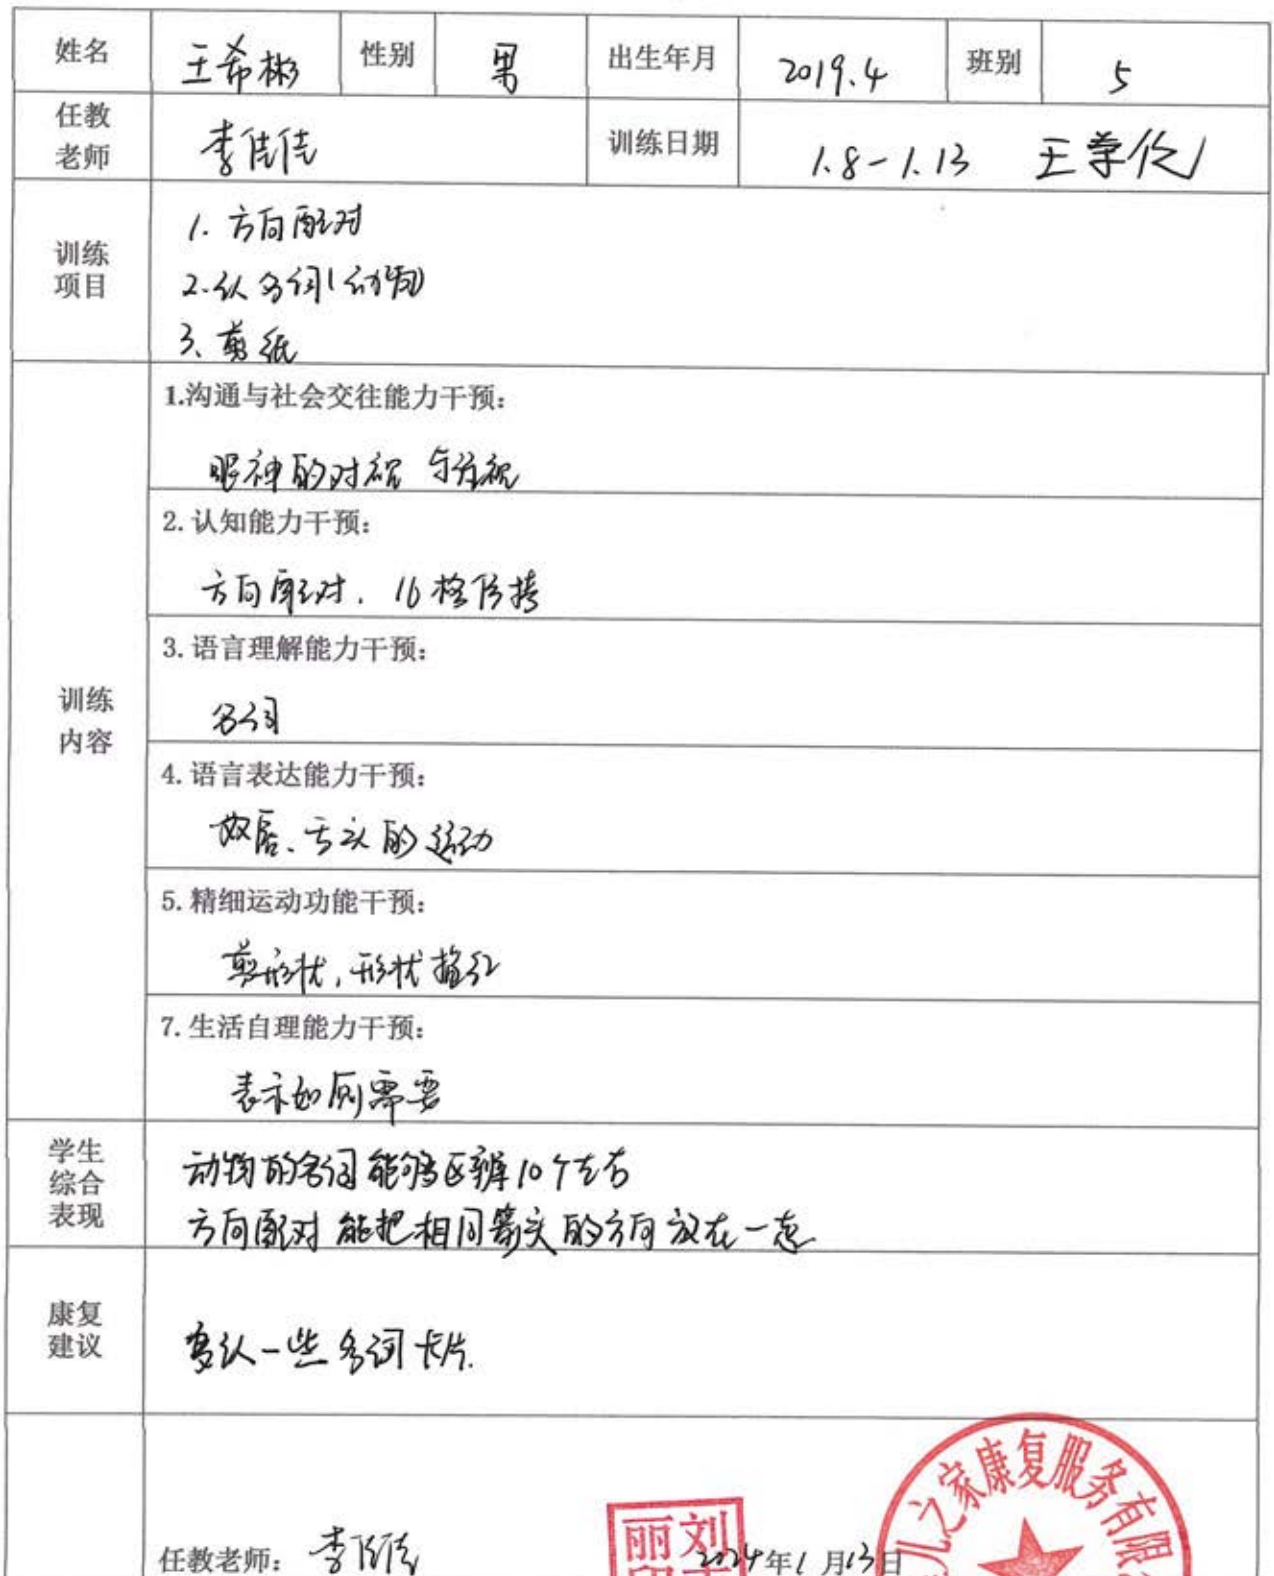 姓名 王希彬 性别 男 出生年月 2019.4 班别 5
任教老师 李佳佳 训练日期 1.8-1.13 王
训练项目
1. 方向配对
2. 认名词(动物)
3、剪纸
训练内容
1.沟通与社会交往能力干预：
眼神的对视 与注视
2. 认知能力干预：
方向配对. 16格仿搭
3. 语言理解能力干预：
名词
4. 语言表达能力干预：
双唇、舌头的运动
5. 精细运动功能干预：
剪形状，形状描红
7. 生活自理能力干预：
表示如厕需要
学生综合表现
动物的名词能够区辨10个左右
方向配对 能把相同箭头的方向放在一起
康复建议
多认一些名词卡片.
任教老师：李佳佳 2024年1月13日
儿之家康复服务有限
刘
丽